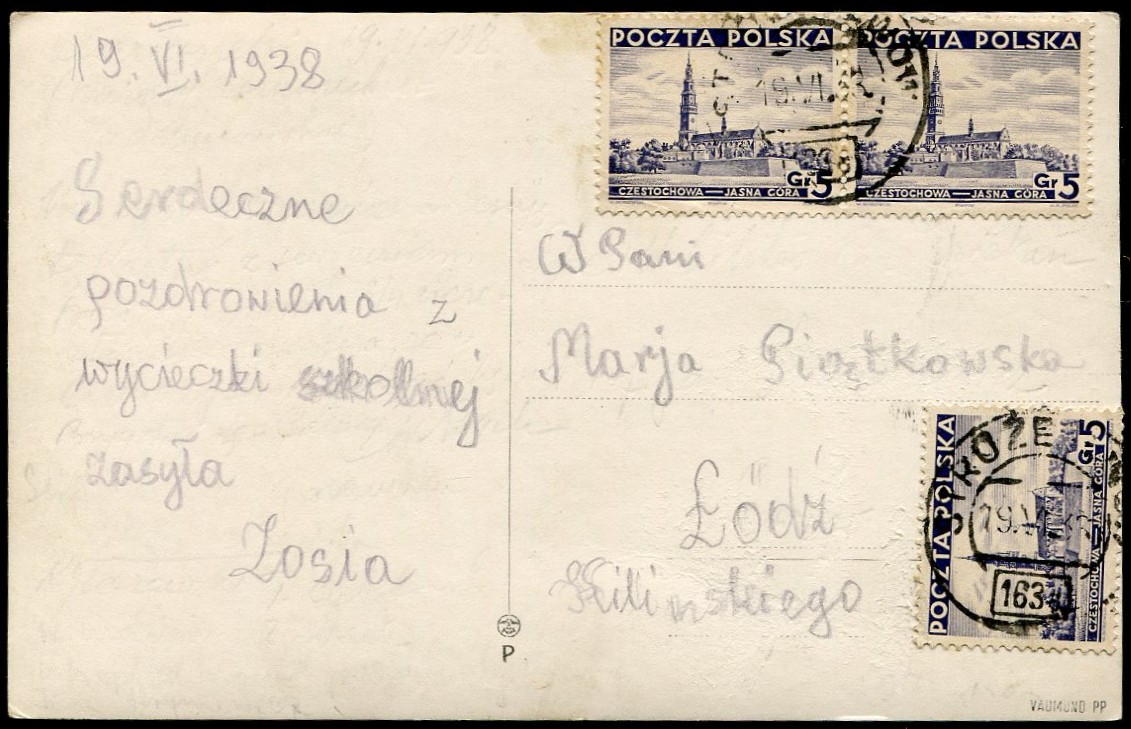 19. VI. 1938
Serdeczne
pozdrowienia z
wycieczki szkolnej
zasyła
Zosia
POCZTA POLSKA
CZĘSTOCHOWA—JASNA GÓRA Gr 5
POCZTA POLSKA
CZĘSTOCHOWA—JASNA GÓRA Gr 5
19.VI.
W Pani
Marja Piątkowska
Łódź
Kilińskiego
POCZTA POLSKA
CZĘSTOCHOWA—JASNA GÓRA Gr 5
STRÓŻE
19.VI.38
163
P
VADMUND PP